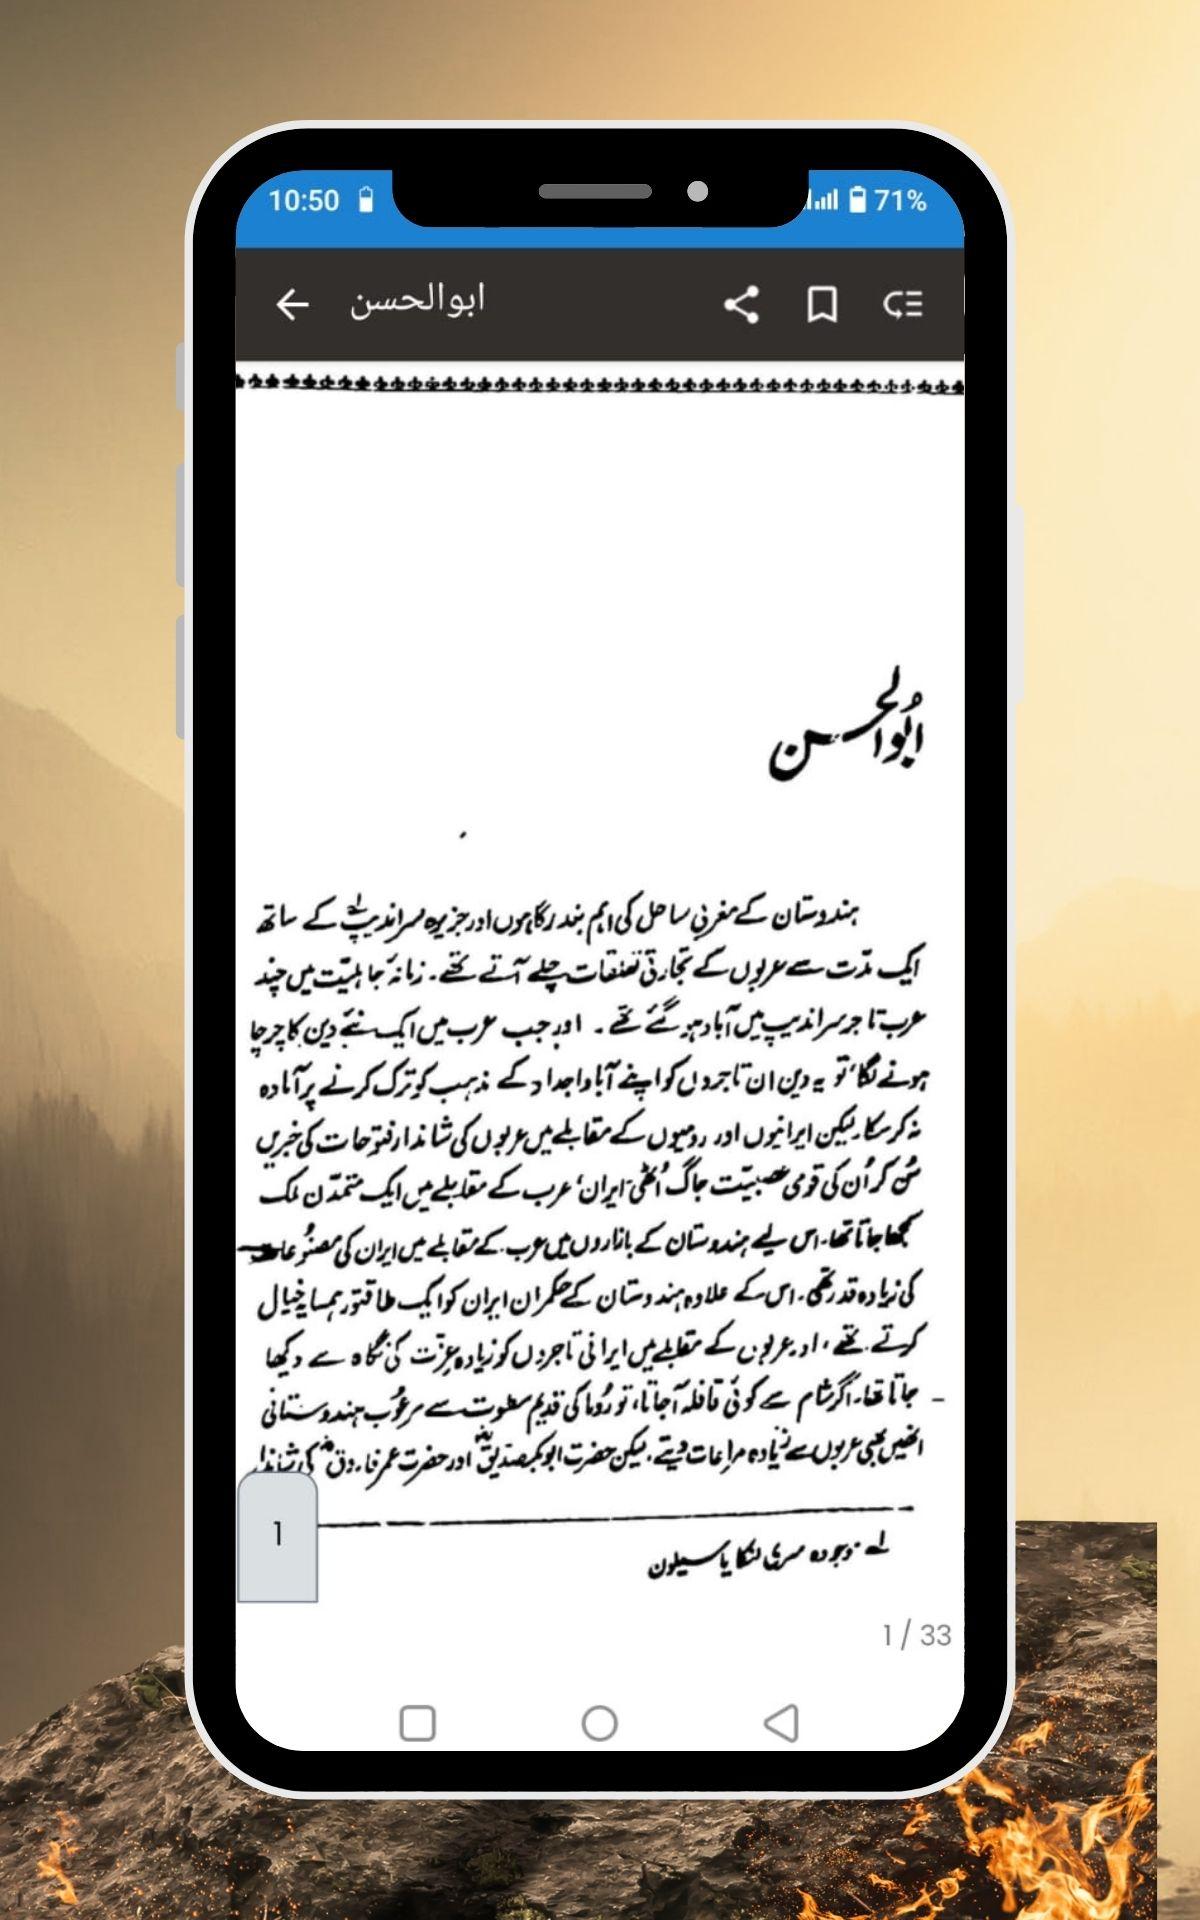 10:50
71%
ابوالحسن
ابُوالحسن
ہندوستان کے مغربی ساحل کی اہم بندرگاہوں اور جزیرہ سراندیپ لے کے ساتھ
ایک مدّت سے عربوں کے تجارتی تعلقات چلے آتے تھے۔ زمانۂ جاہلیّت میں چند
عرب تاجر سراندیپ میں آباد ہو گئے تھے۔ اور جب عرب میں ایک نئے دین کا چرچا
ہونے لگا، تو یہ دین ان تاجروں کو اپنے آباواجداد کے مذہب کو ترک کرنے پر آمادہ
نہ کر سکا۔ لیکن ایرانیوں اور رومیوں کے مقابلے میں عربوں کی شاندار فتوحات کی خبریں
سُن کر اُن کی قومی عصبیّت جاگ اُٹھی۔ ایران، عرب کے مقابلے میں ایک متمدّن ملک
سمجھا جاتا تھا۔ اس لیے ہندوستان کے بازاروں میں عرب کے مقابلے میں ایران کی مصنُوعات
کی زیادہ قدر تھی۔ اس کے علاوہ ہندوستان کے حکمران ایران کو ایک طاقتور ہمسایہ خیال
کرتے تھے، اور عربوں کے مقابلے میں ایرانی تاجروں کو زیادہ عزّت کی نگاہ سے دیکھا
جاتا تھا۔ اگر شام سے کوئی قافلہ آجاتا، تو رُوما کی قدیم سطوت سے مرعُوب ہندوستانی
انھیں بھی عربوں سے زیادہ مراعات دیتے۔ لیکن حضرت ابوبکر صدیقؓ اور حضرت عمر فاروقؓ کی شاندا
1
لے موجودہ سری لنکا یا سیلون
1 / 33